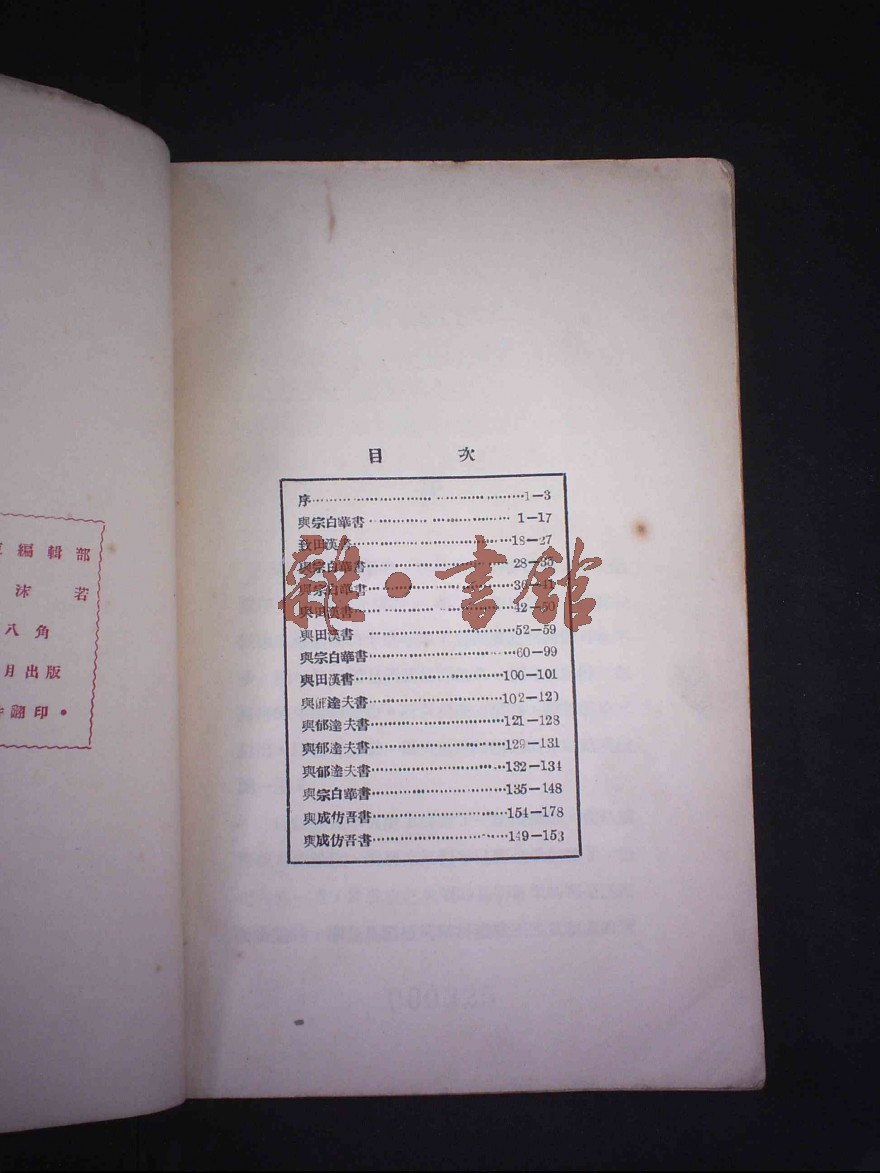 編輯部
沫若
八角
月出版
翻印•
目次
序1—3
與宗白華書1—17
致田漢書18—27
與宗白華書28—35
與宗白華書
與田漢書42—50
與田漢書52—59
與宗白華書60—99
與田漢書100—101
與郁達夫書102—120
與郁達夫書121—128
與郁達夫書129—131
與郁達夫書132—134
與宗白華書135—148
與成仿吾書154—178
與成仿吾書149—153
雜•書館